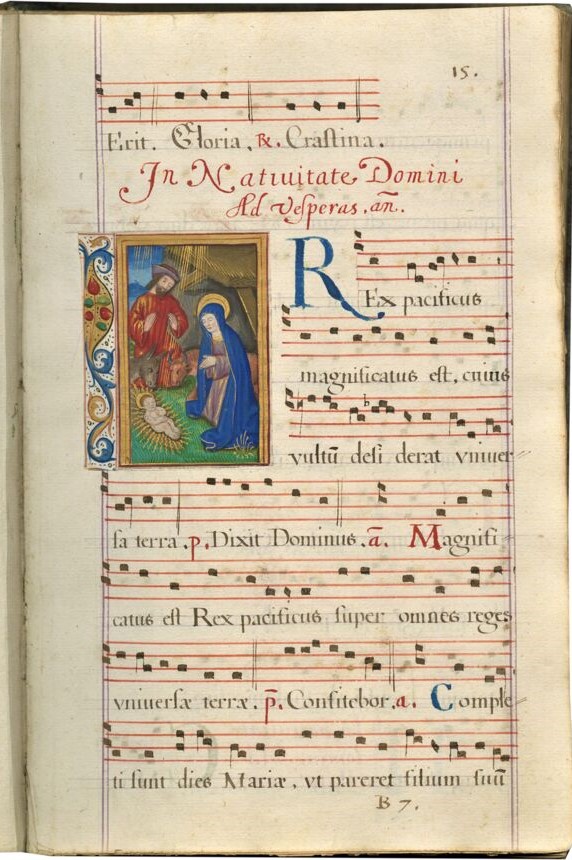 15.
Erit. Gloria, ℟. Crastina.
In Natiuitate Domini
Ad Vesperas. an̄.
REx pacificus
magnificatus est, cuius
vultū desi derat vniuer-
sa terra. p. Dixit Dominus. ā. Magnifi-
catus est Rex pacificus super omnes reges
vniuersæ terræ. p̄. Confitebor. a. Comple-
ti sunt dies Mariæ, vt pareret filium suū
B 7.